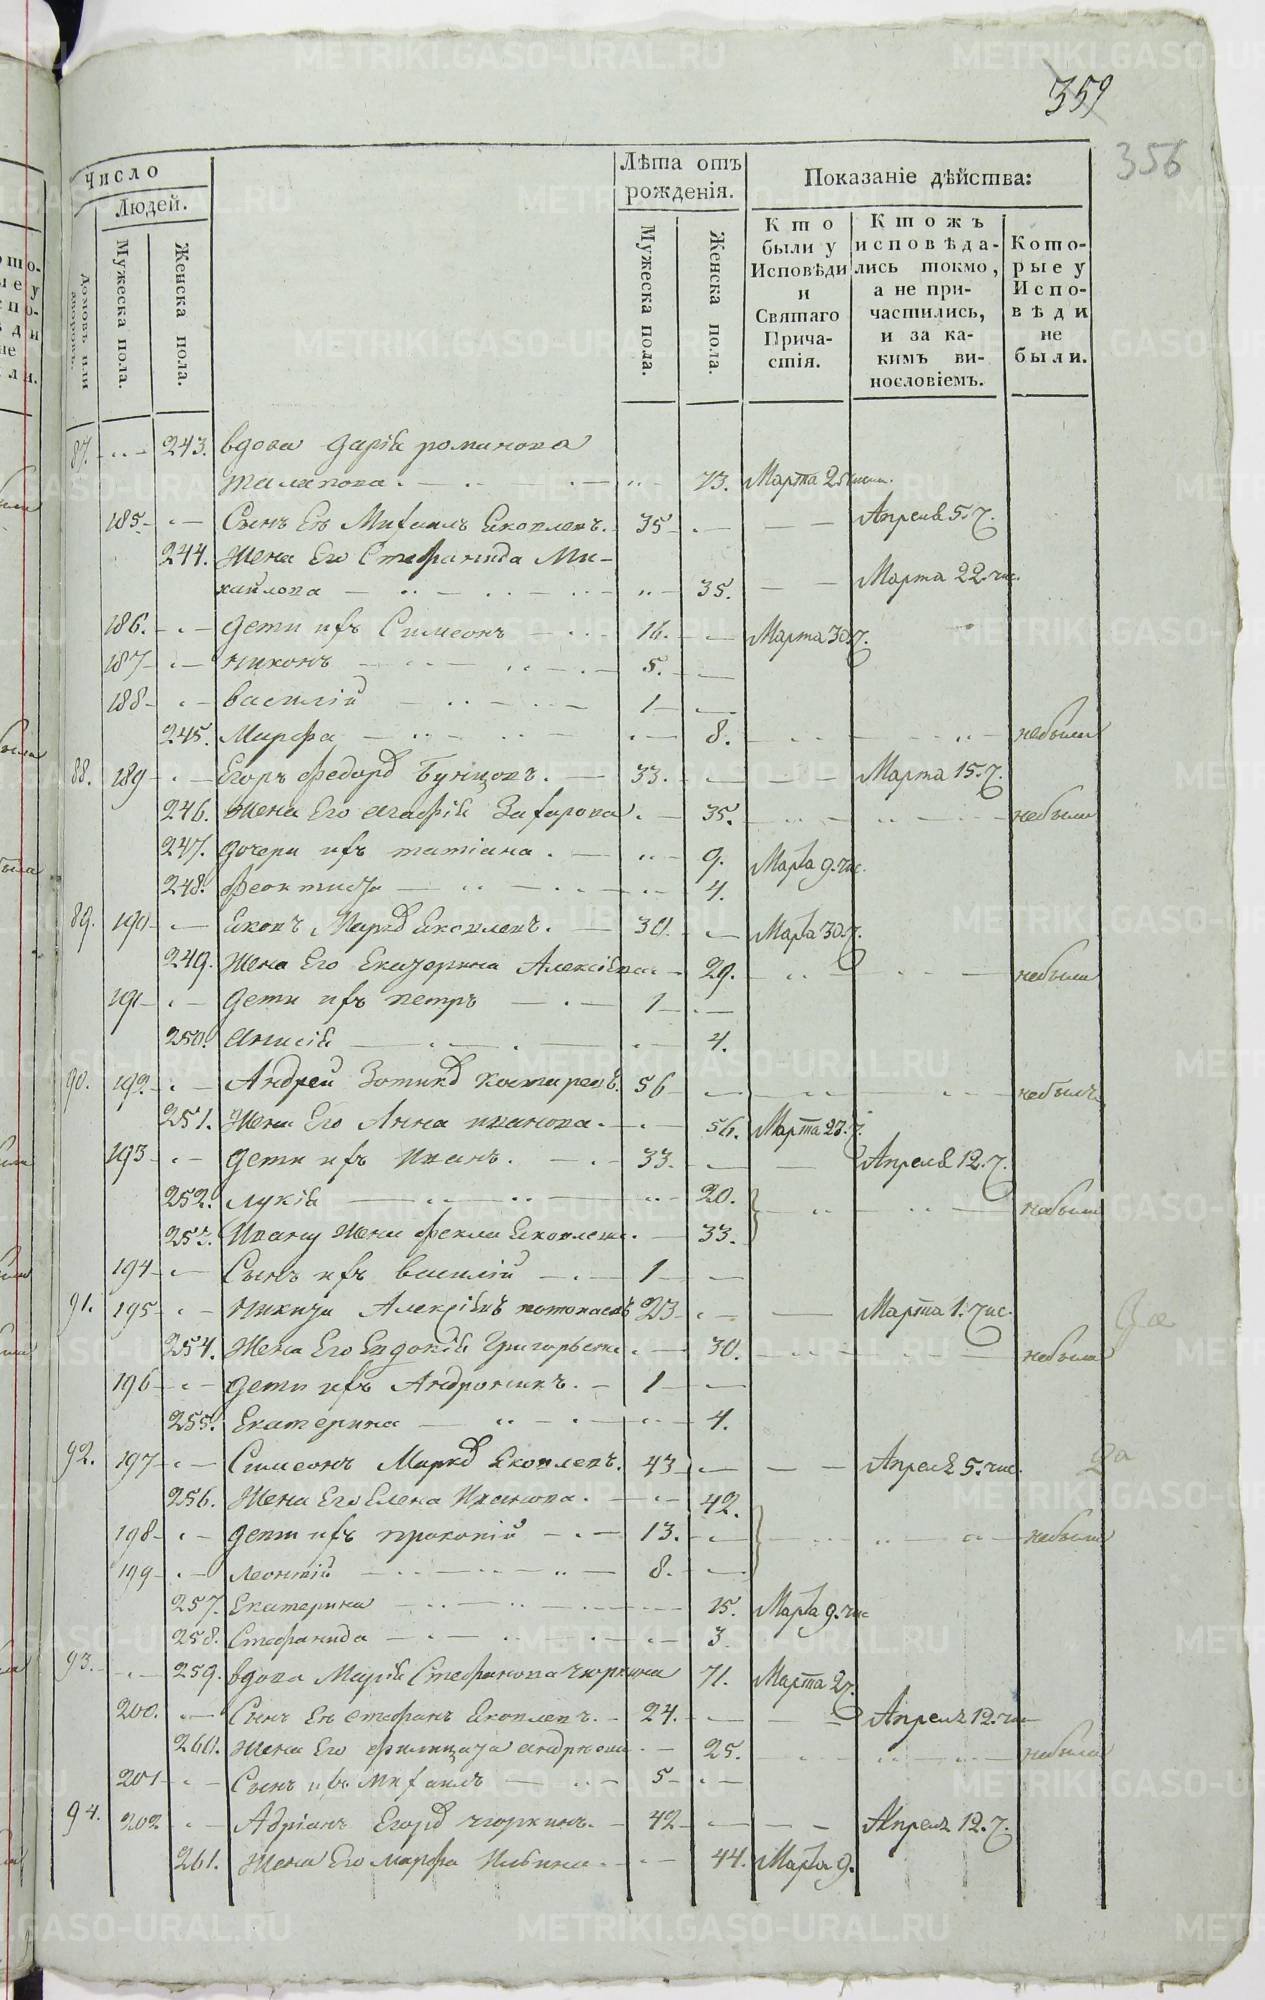 359
356
Число
Людей.
Лѣта отъ рожденія.
Показаніе дѣйства:
Домовъ или дворовъ.
Мужеска пола.
Женска пола.
Мужеска пола.
Женска пола.
Кто были у Исповѣди и Святаго Причастія.
Ктожъ исповѣдались токмо, а не причастились, и за какимъ винословіемъ.
Которые у Исповѣди не были.
87. 243. вдова Дарія романова
Талапова. 73. Марта 25 числ.
185 Сынъ Ея Михаилъ Яковлевъ. 35 Апреля 5. ч.
244. Жена Его Стефанида Ми-
хайлова 35. Марта 22. чис.
186. Дети ихъ Симеонъ 16. Марта 30. ч.
187 никонъ 5.
188 василій 1
245. Марфа 8. небыли
88. 189 Егоръ Федор Бунцовъ. 33. Марта 15. ч.
246. Жена Его Агафія Захарова. 35. небыли
247. дочери ихъ татіана. 9. Марта 9. чис.
248. феоктиста 4.
89. 190 Яковъ Марк Яковлевъ. 30. Марта 30. ч.
249. Жена Его Екатерина Алексіева 29. небыли
191 Дети ихъ петръ 1
250. Анисія 4.
90. 192. Андрей Зотик Костаревъ. 56 небылъ
251. Жена Его Анна иванова. 56. Марта 27. ч.
193 Дети ихъ Иванъ. 33. Апреля 12. ч.
252. лукія 20. небыли
253. Ивану Жена фекла Яковлева. 33.
194 Сынъ ихъ василій 1
91. 195 никита Алексіевъ 23 Марта 1. чис.
254. Жена Его Евдокія Григорьева 30. небыла
196 дети ихъ Андроникъ. 1
255. Екатерина 4.
92. 197 Симеонъ Марк Яковлевъ. 43 Апреля 5. чис.
256. Жена Его Елена Иванова. 42.
198 дети ихъ прокопій 13. небыли
199 леонтій 8.
257. Екатерина 15. Марта 9. чис
258. Стефанида 3
93. 259. вдова Марія Стефанова Чюркина 71. Марта 27.
200. Сынъ Ея стефанъ Яковлевъ. 24. Апреля 12. чис
260. Жена Его филицата андрѣова 25. небыла
201 Сынъ ихъ Михаилъ 5
94. 202 Адріанъ Егор чюркинъ. 42 Апреля 12. ч.
261. Жена Его марфа Ильина. 44. Марта 9.
METRIKI.GASO-URAL.RU